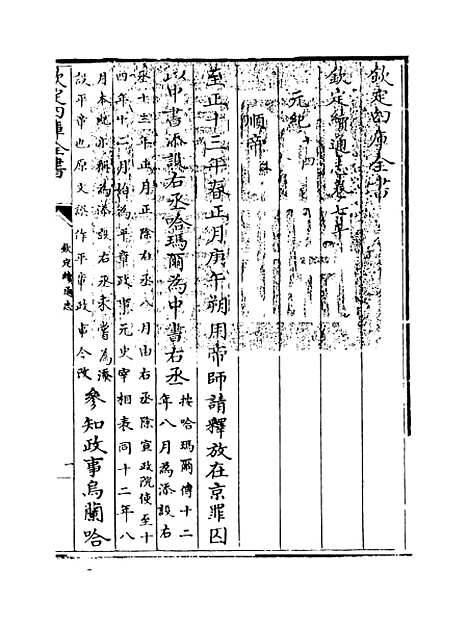 欽定四庫全書
欽定續通志卷七十
元紀十四
順帝
至正十三年春正月庚午朔用帝師請釋放在京罪囚
以中書添設右丞哈瑪爾為中書右丞
按哈瑪爾傳十二
年八月為添設右
丞十三年正月正除右丞八月由右丞除宣政院使至十
四年十二月始為平章政事元史宰相表同十二年八
月本紀亦稱為添設右丞未嘗為添
設平章也原文誤作平章政事今改
參知政事烏蘭哈
欽定四庫全書
欽定續通志
一